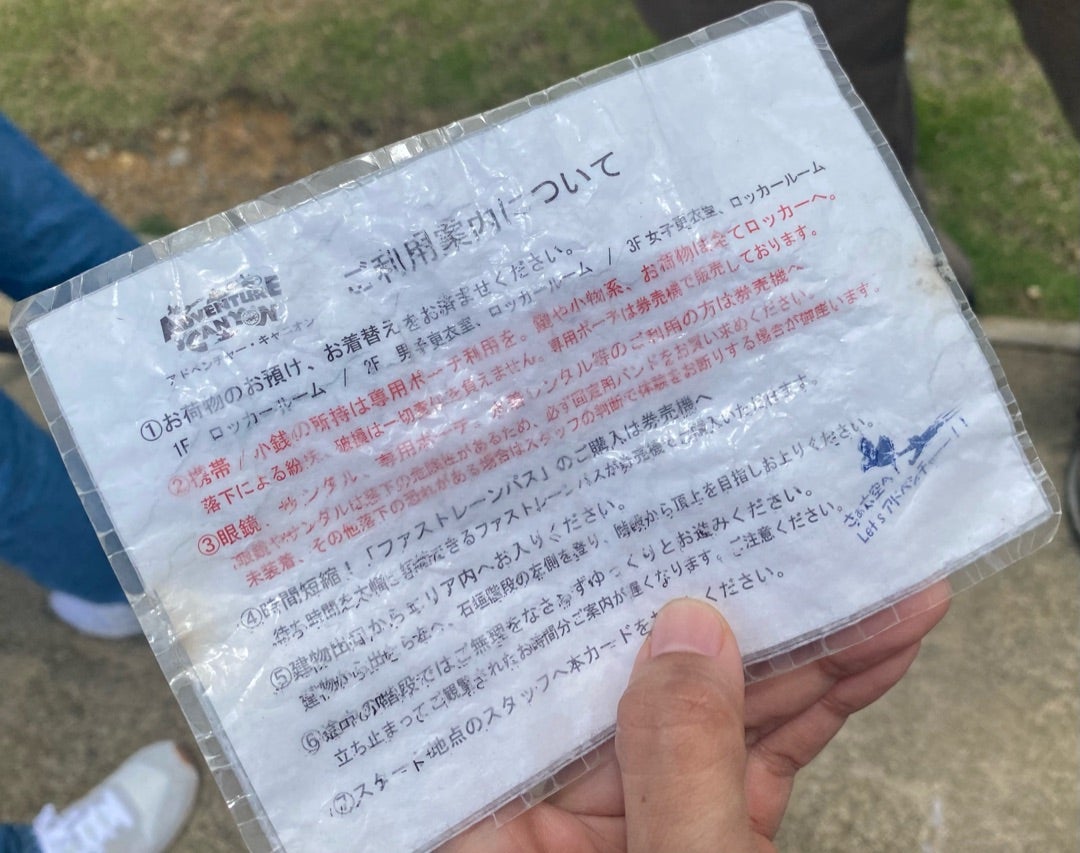 ADVENTURE
CANYON
アドベンチャー・キャニオン
ご利用案内について
①お荷物のお預け、お着替えをお済ませください。
1F ロッカールーム / 2F 男子更衣室、ロッカールーム / 3F 女子更衣室、ロッカールーム
②携帯 / 小銭の所持は専用ポーチ利用を。鍵や小物系、お荷物は全てロッカーへ。
落下による紛失、破損は一切責任を負えません。専用ポーチは券売機で販売しております。
③眼鏡、サンダル、専用ポーチ、レンタル等のご利用の方は券売機へ
眼鏡やサンダルは落下の危険性があるため、必ず固定用バンドをお買い求めください。
未装着、その他落下の恐れがある場合はスタッフの判断で体験をお断りする場合が御座います。
④時間短縮!「ファストレーンパス」のご購入は券売機へ
待ち時間を大幅に短縮できるファストレーンパスが券売機でご購入いただけます。
⑤建物出口からエリア内へお入りください。
建物から出たら左へ、石垣階段の左側を登り、階段から頂上を目指しお上りください。
⑥途中の階段ではご無理をなさらずゆっくりとお進みください。
立ち止まってご観覧されたお時間分ご案内が遅くなります。ご注意ください。
⑦スタート地点のスタッフへ本カードを ください。
さぁ大空へ
Let's アドベンチャー!!